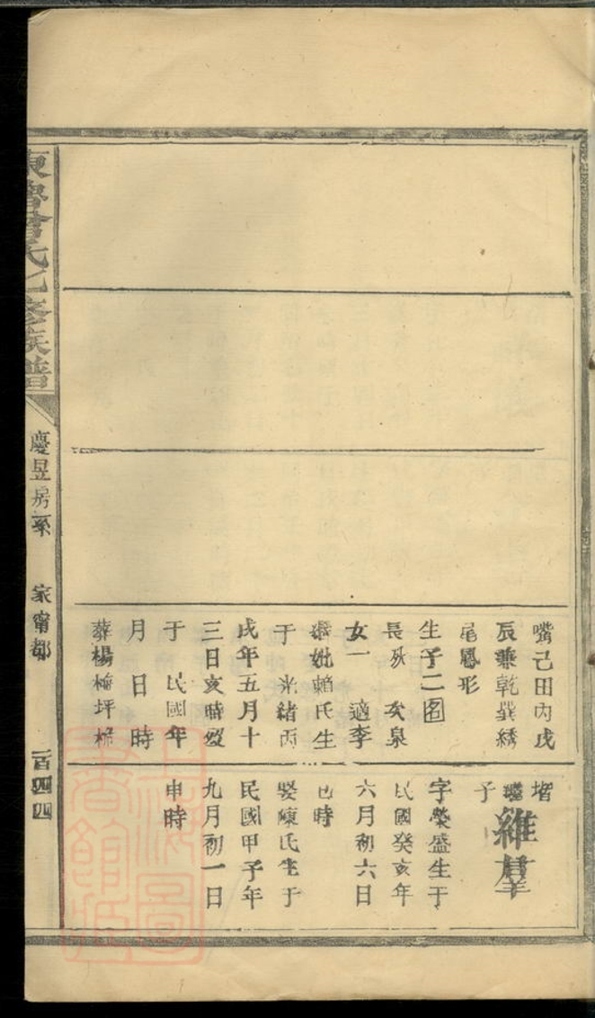 東魯曾氏七修族譜
慶昱房系
家甯都
一百四四
嘴己田丙戌
辰兼乾巽綉
尾鳳形
生子二
長 泉
女一 適李
妣賴氏生
于光緒丙
戌年五月十
三日亥時歿
于 民國年
月 日 時
葬楊梅坪
增
子
維羣
字榮盛生于
民國癸亥年
六月初六日
巳時
娶陳氏生于
民國甲子年
九月初一日
申時